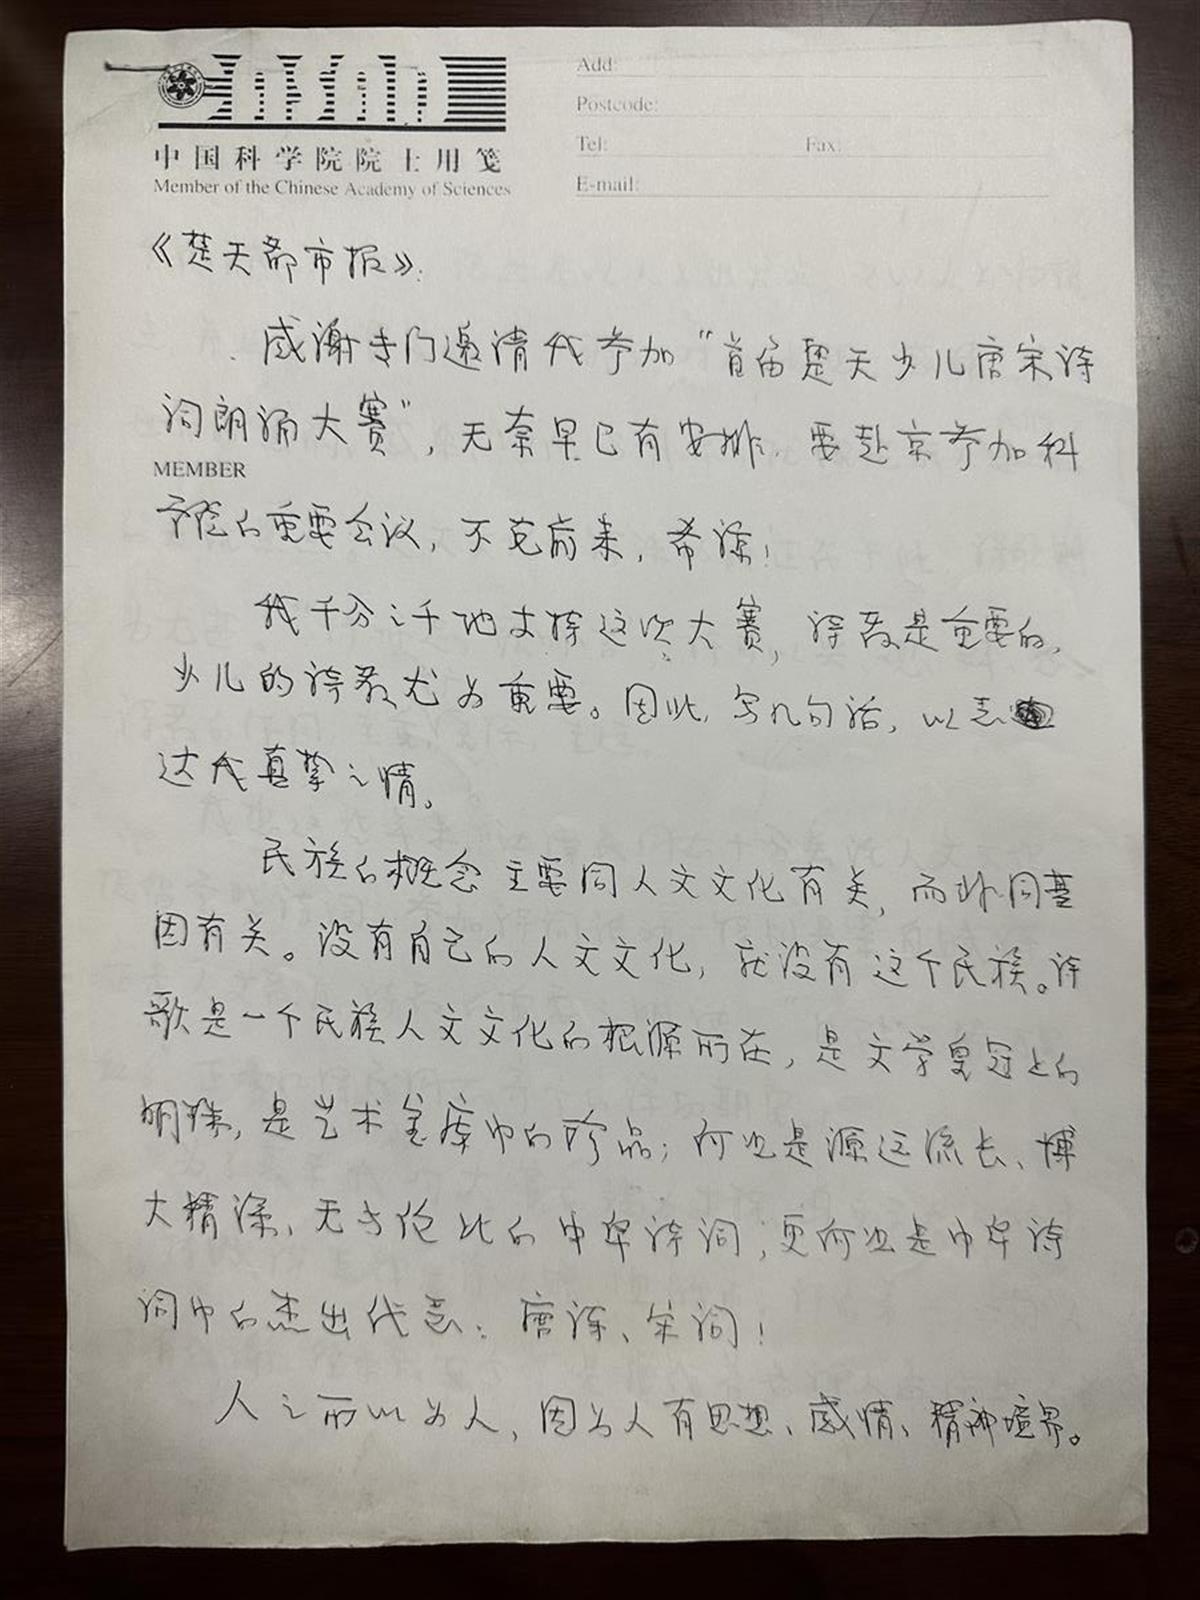 Add:
Postcode:
Tel: Fax:
E-mail:
中国科学院院士用笺
Member of the Chinese Academy of Sciences
《楚天都市报》:
感谢专门邀请我参加“首届楚天少儿唐宋诗
词朗诵大赛”，无奈早已有安排，要赴京参加科
MEMBER
学院的重要会议，不克前来，希谅！
我十分之十地支持这次大赛，诗教是重要的，
少儿的诗教尤为重要。因此，写几句话，以表
达我真挚之情。
民族的概念主要同人文文化有关，而非同基
因有关。没有自己的人文文化，就没有这个民族。诗
歌是一个民族人文文化的根源所在，是文学皇冠上的
明珠，是艺术宝库中的珍品；何况是源远流长、博
大精深、无与伦比的中华诗词；更何况是中华诗
词中的杰出代表：唐诗、宋词！
人之所以为人，因为人有思想、感情、精神境界。